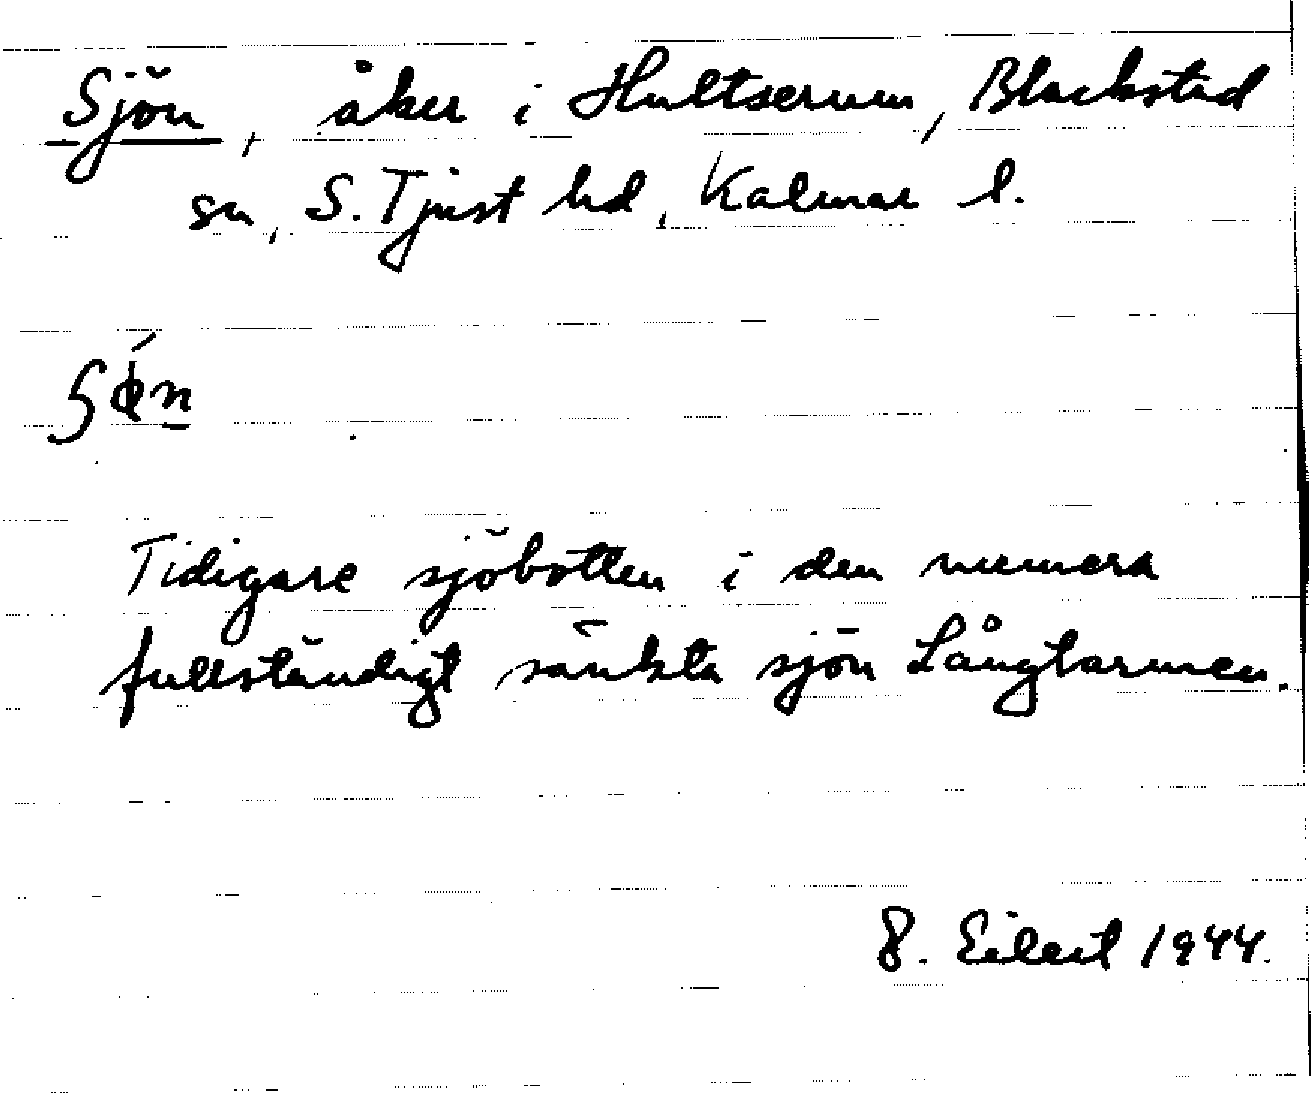 Sjön, åker i Hultserum, Blackstad
sn, S. Tjust hd, Kalmar l.
Tidigare sjöbotten i den numera
fullständigt sänkta sjön Långtarmen.
Eilert 1944.